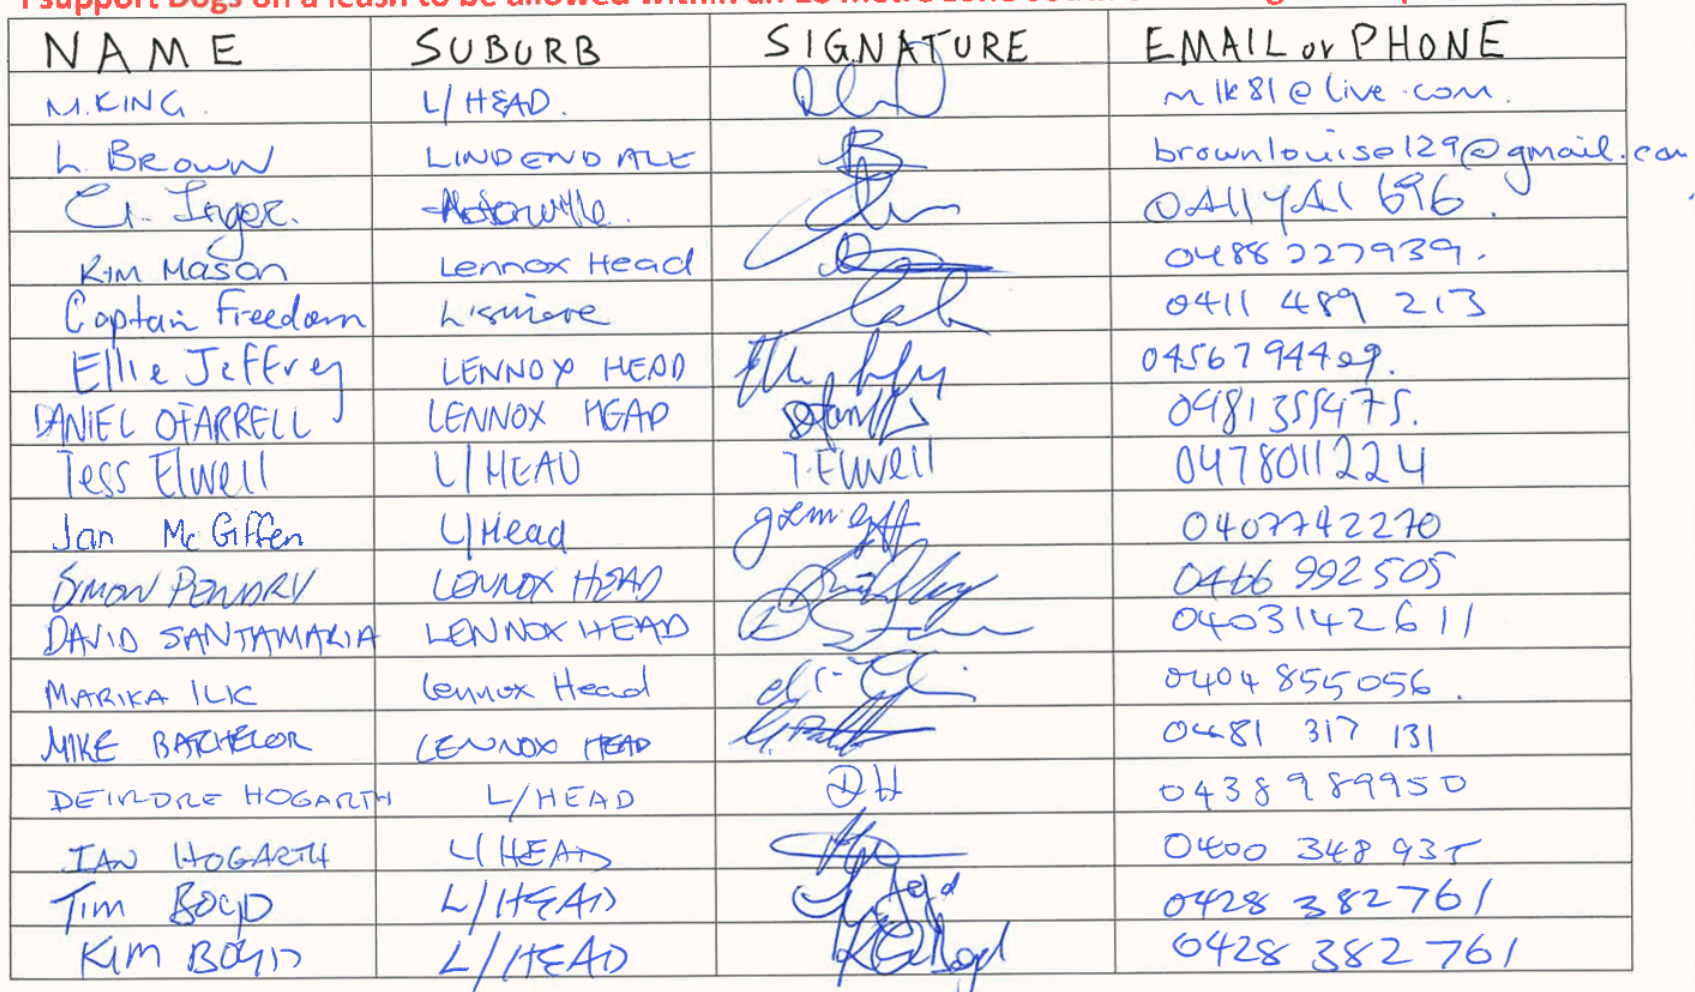 I support Dogs on a leash to be allowed within an
NAME SUBURB SIGNATURE EMAIL or PHONE
M.KING. L/HEAD. m1k81@live.com.
L. BROWN LINDENDALE B brownlouise129@gmail.com
G. Inger.
Kim Mason Lennox Head 0488 227939.
Captain Freedom Lismore 0411 489 213
Ellie Jeffrey LENNOX HEAD
DANIEL OFARRELL LENNOX HEAD 0481355475.
Tess Elwell L/HEAD T.Elwell 0478011224
Jan McGiffen L/Head 0407742270
SIMON PENDRY LENNOX HEAD 0466 992505
DAVID SANTAMARIA LENNOX HEAD 0403142611
MARIKA ILIC Lennox Head 0404 855056.
MIKE BATCHELOR LENNOX HEAD 0481 317 131
DEIRDRE HOGARTH L/HEAD DH 0438989950
IAN HOGARTH L/HEAD 0400 348 935
Tim BOYD L/HEAD 0428 382761
Kim BOYD L/HEAD 0428 382 761